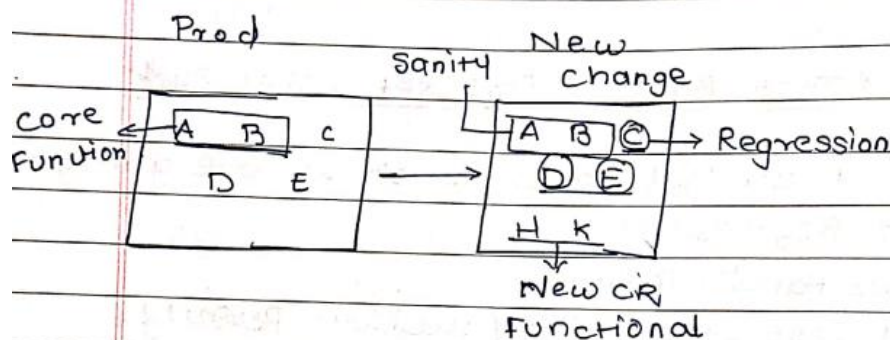 Prod
New
Sanity
change
core
Funution
A B C
D E
A B C
Regression
D E
H K
New CR
Functional